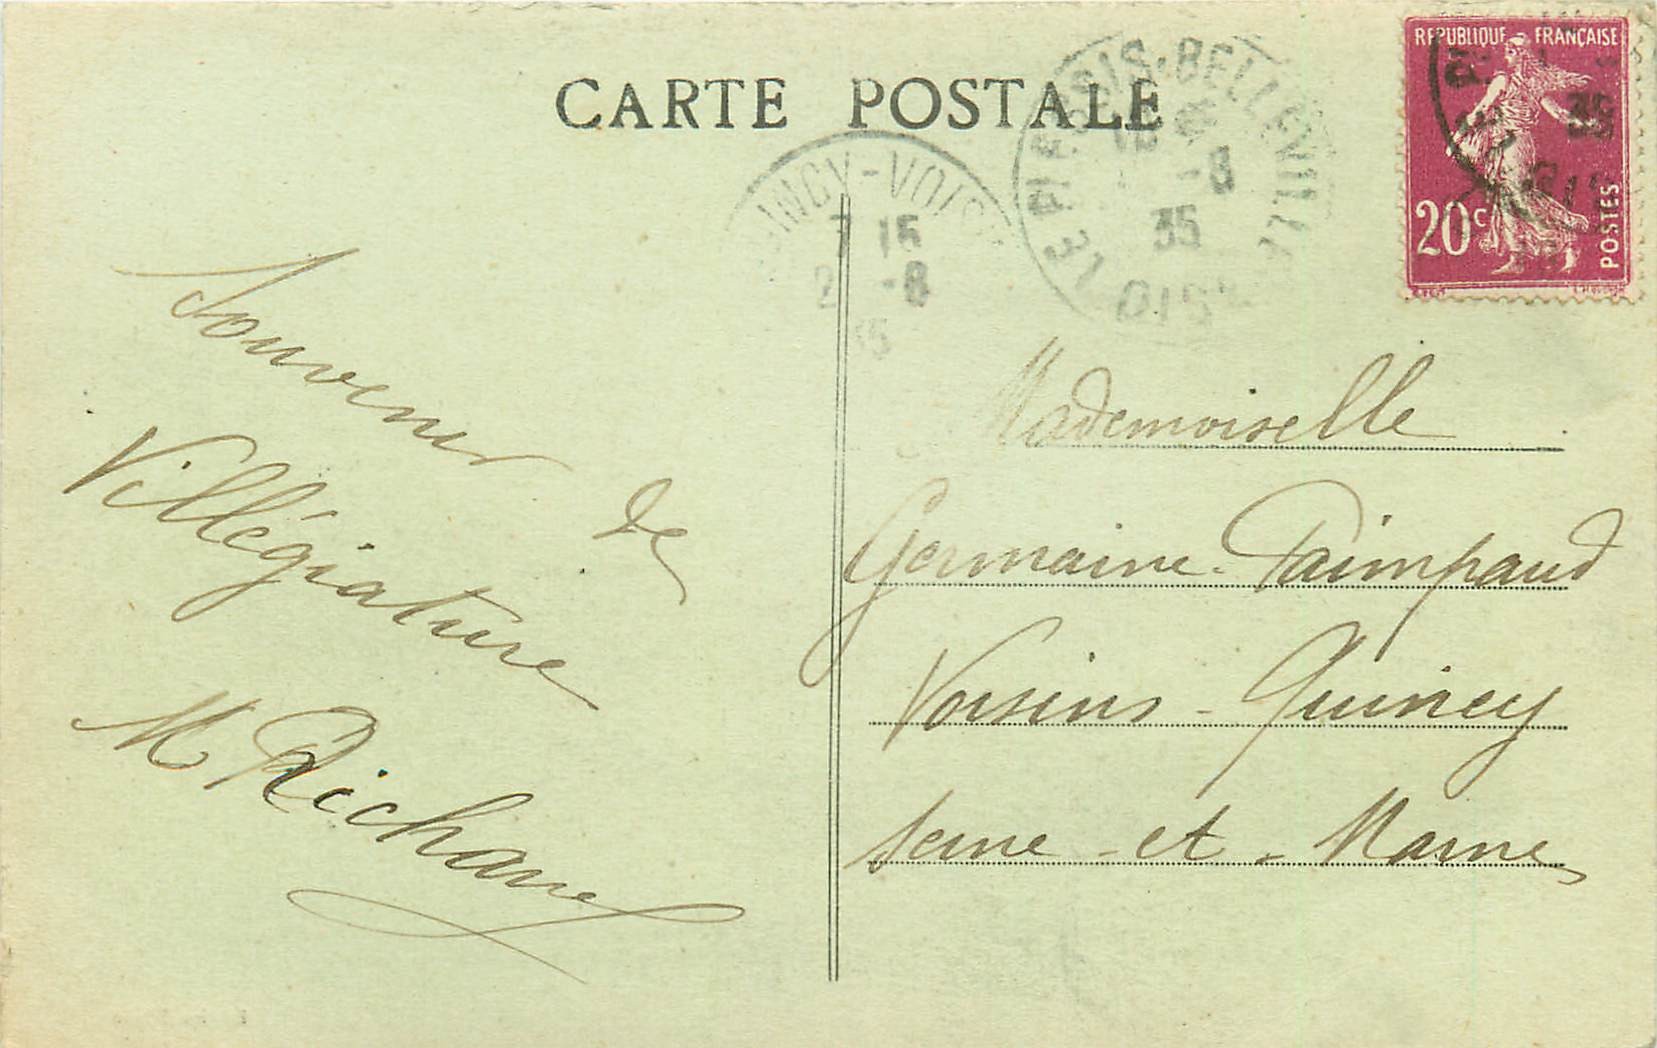 CARTE POSTALE
LE PLESSIS-BELLEVILLE
-8
35
OISE
QUINCY-VOISINS
7 15
2 -8
35
REPUBLIQUE FRANÇAISE
20c
POSTES
Souvenir de
Villégiature
M Richard
Mademoiselle
Germaine Paimpaud
Voisins - Quincy
Seine - et - Marne